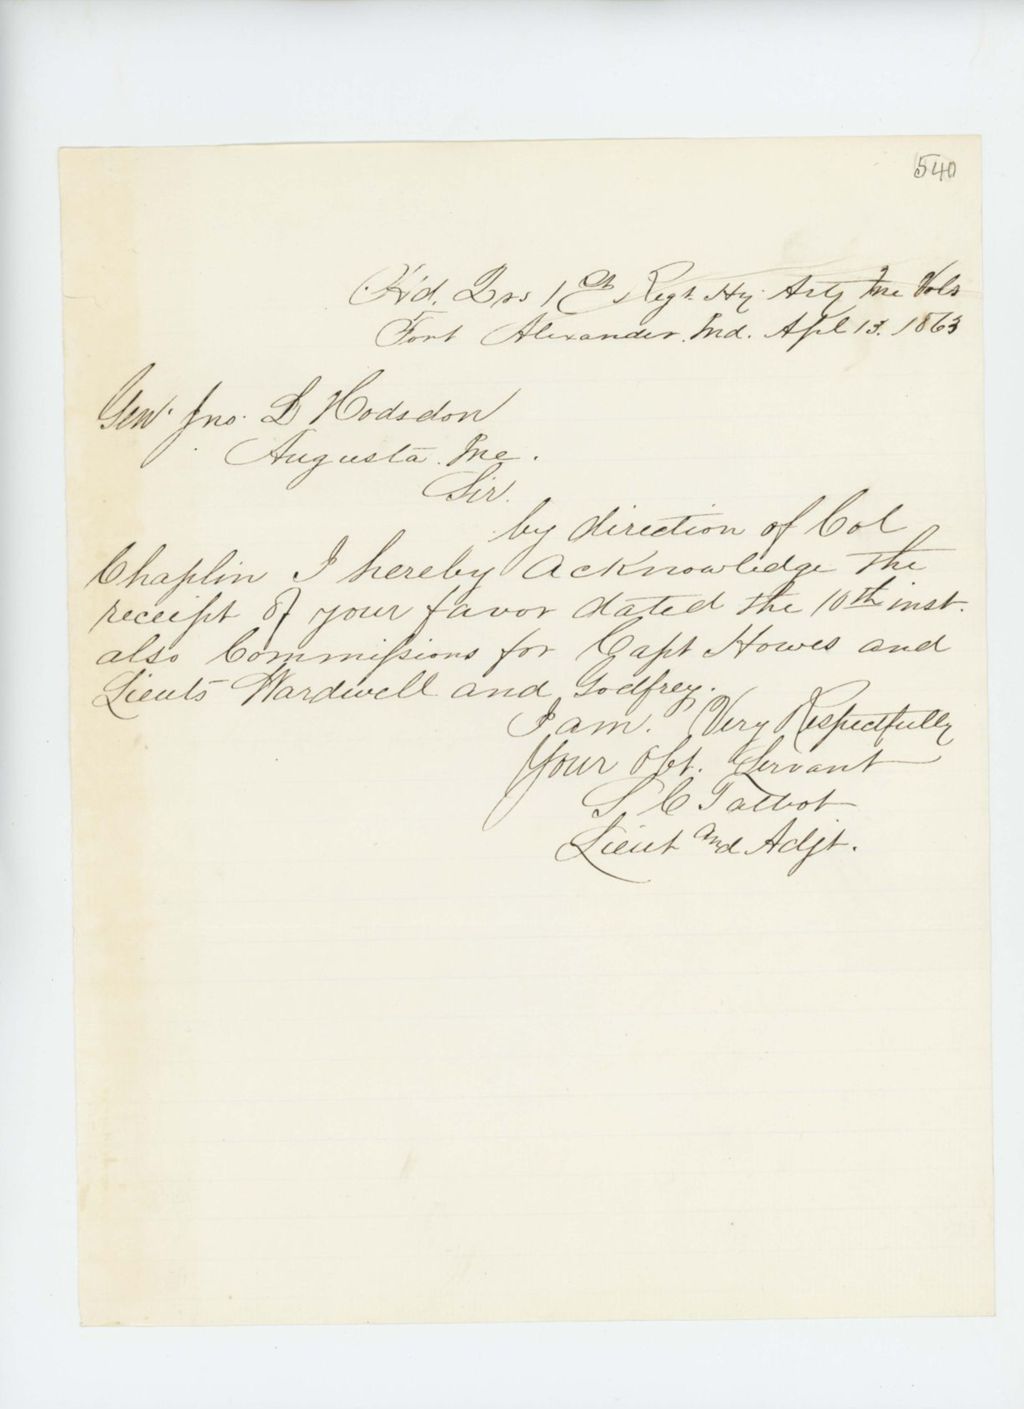 540
H'd. Qrs 1st Regt. Hy. Arty Me Vols
Fort Alexander. Md. Apl 13. 1863
Gen. Jno. L Hodsdon
Augusta. Me.
Sir.
by direction of Col
Chaplin I hereby acknowledge the
receipt of your favor dated the 10th inst.
also Commissions for Capt Howes and
Lieuts Wardwell and Godfrey.
I am. Very Respectfully
Your Obt. Servant
S. C Talbot
Lieut and Adjt.